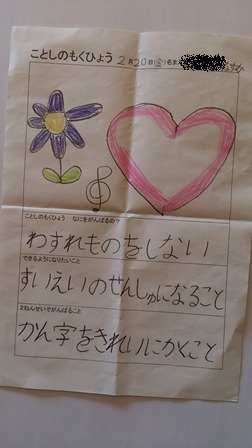 ことしのもくひょう 2月20日(金)名まえ
ことしのもくひょう なにをがんばるの?
わすれものをしない
できるようになりたいこと
すいえいのせんしゅになること
2ねんせいでがんばること
かん字をきれいにかくこと